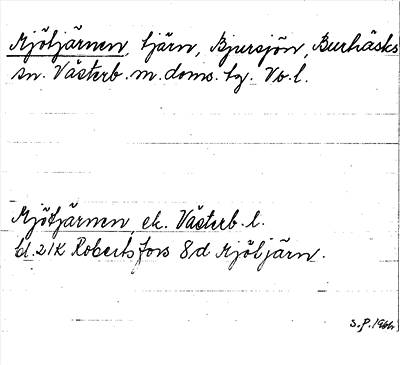 Mjötjärnen, tjärn, Bjursjön, Burträsks
sn. Västerb. m. doms. tg. Vb. l.
Mjötjärnen, ek. Västerb. l.
bl. 21K Robertsfors 8d Mjötjärn.
S.P. 1966